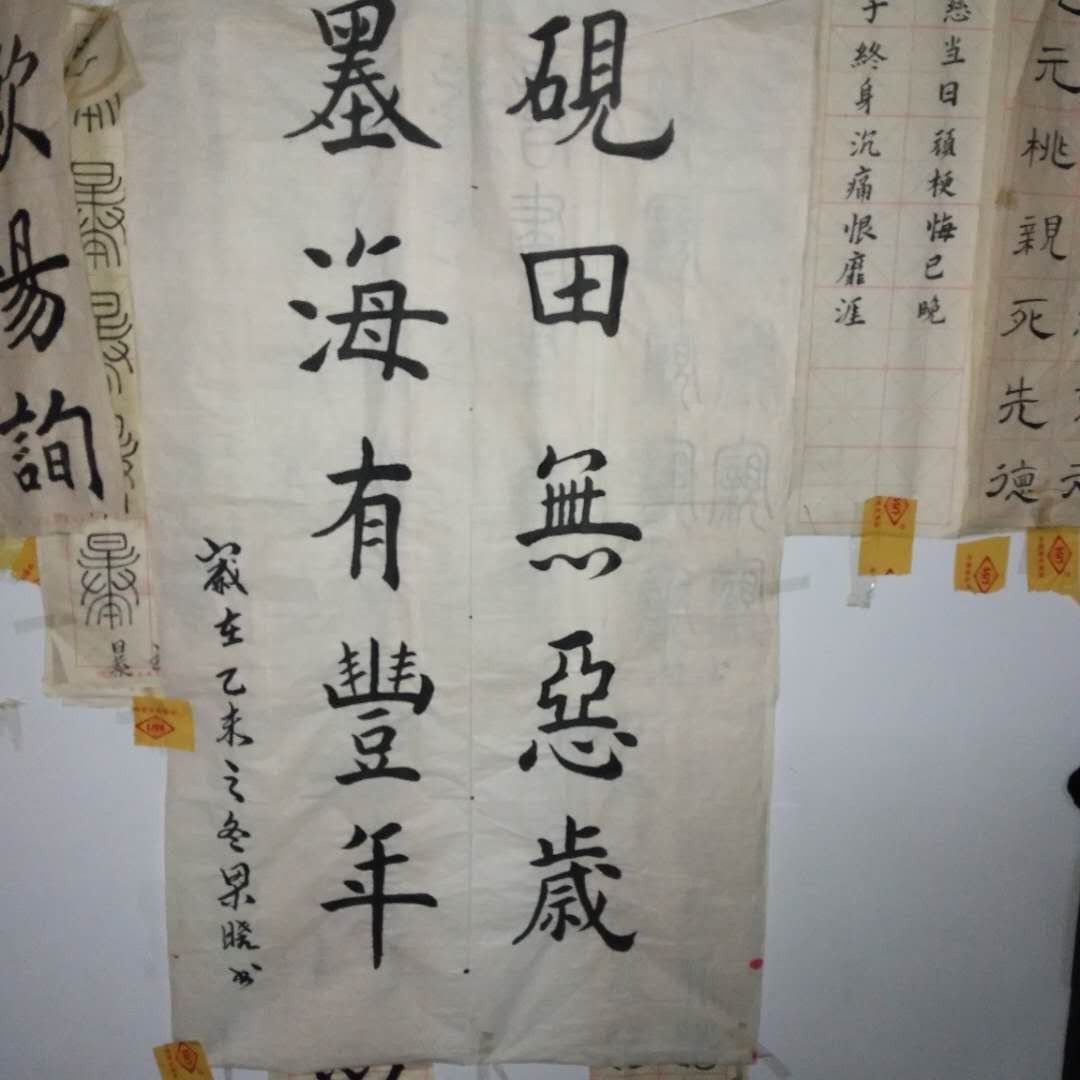 元桃親死先德
慈当日頑梗悔已晚
子終身沉痛恨靡涯
硯田無惡歲
墨海有豐年
歲在乙未之冬果曉书
歐陽詢